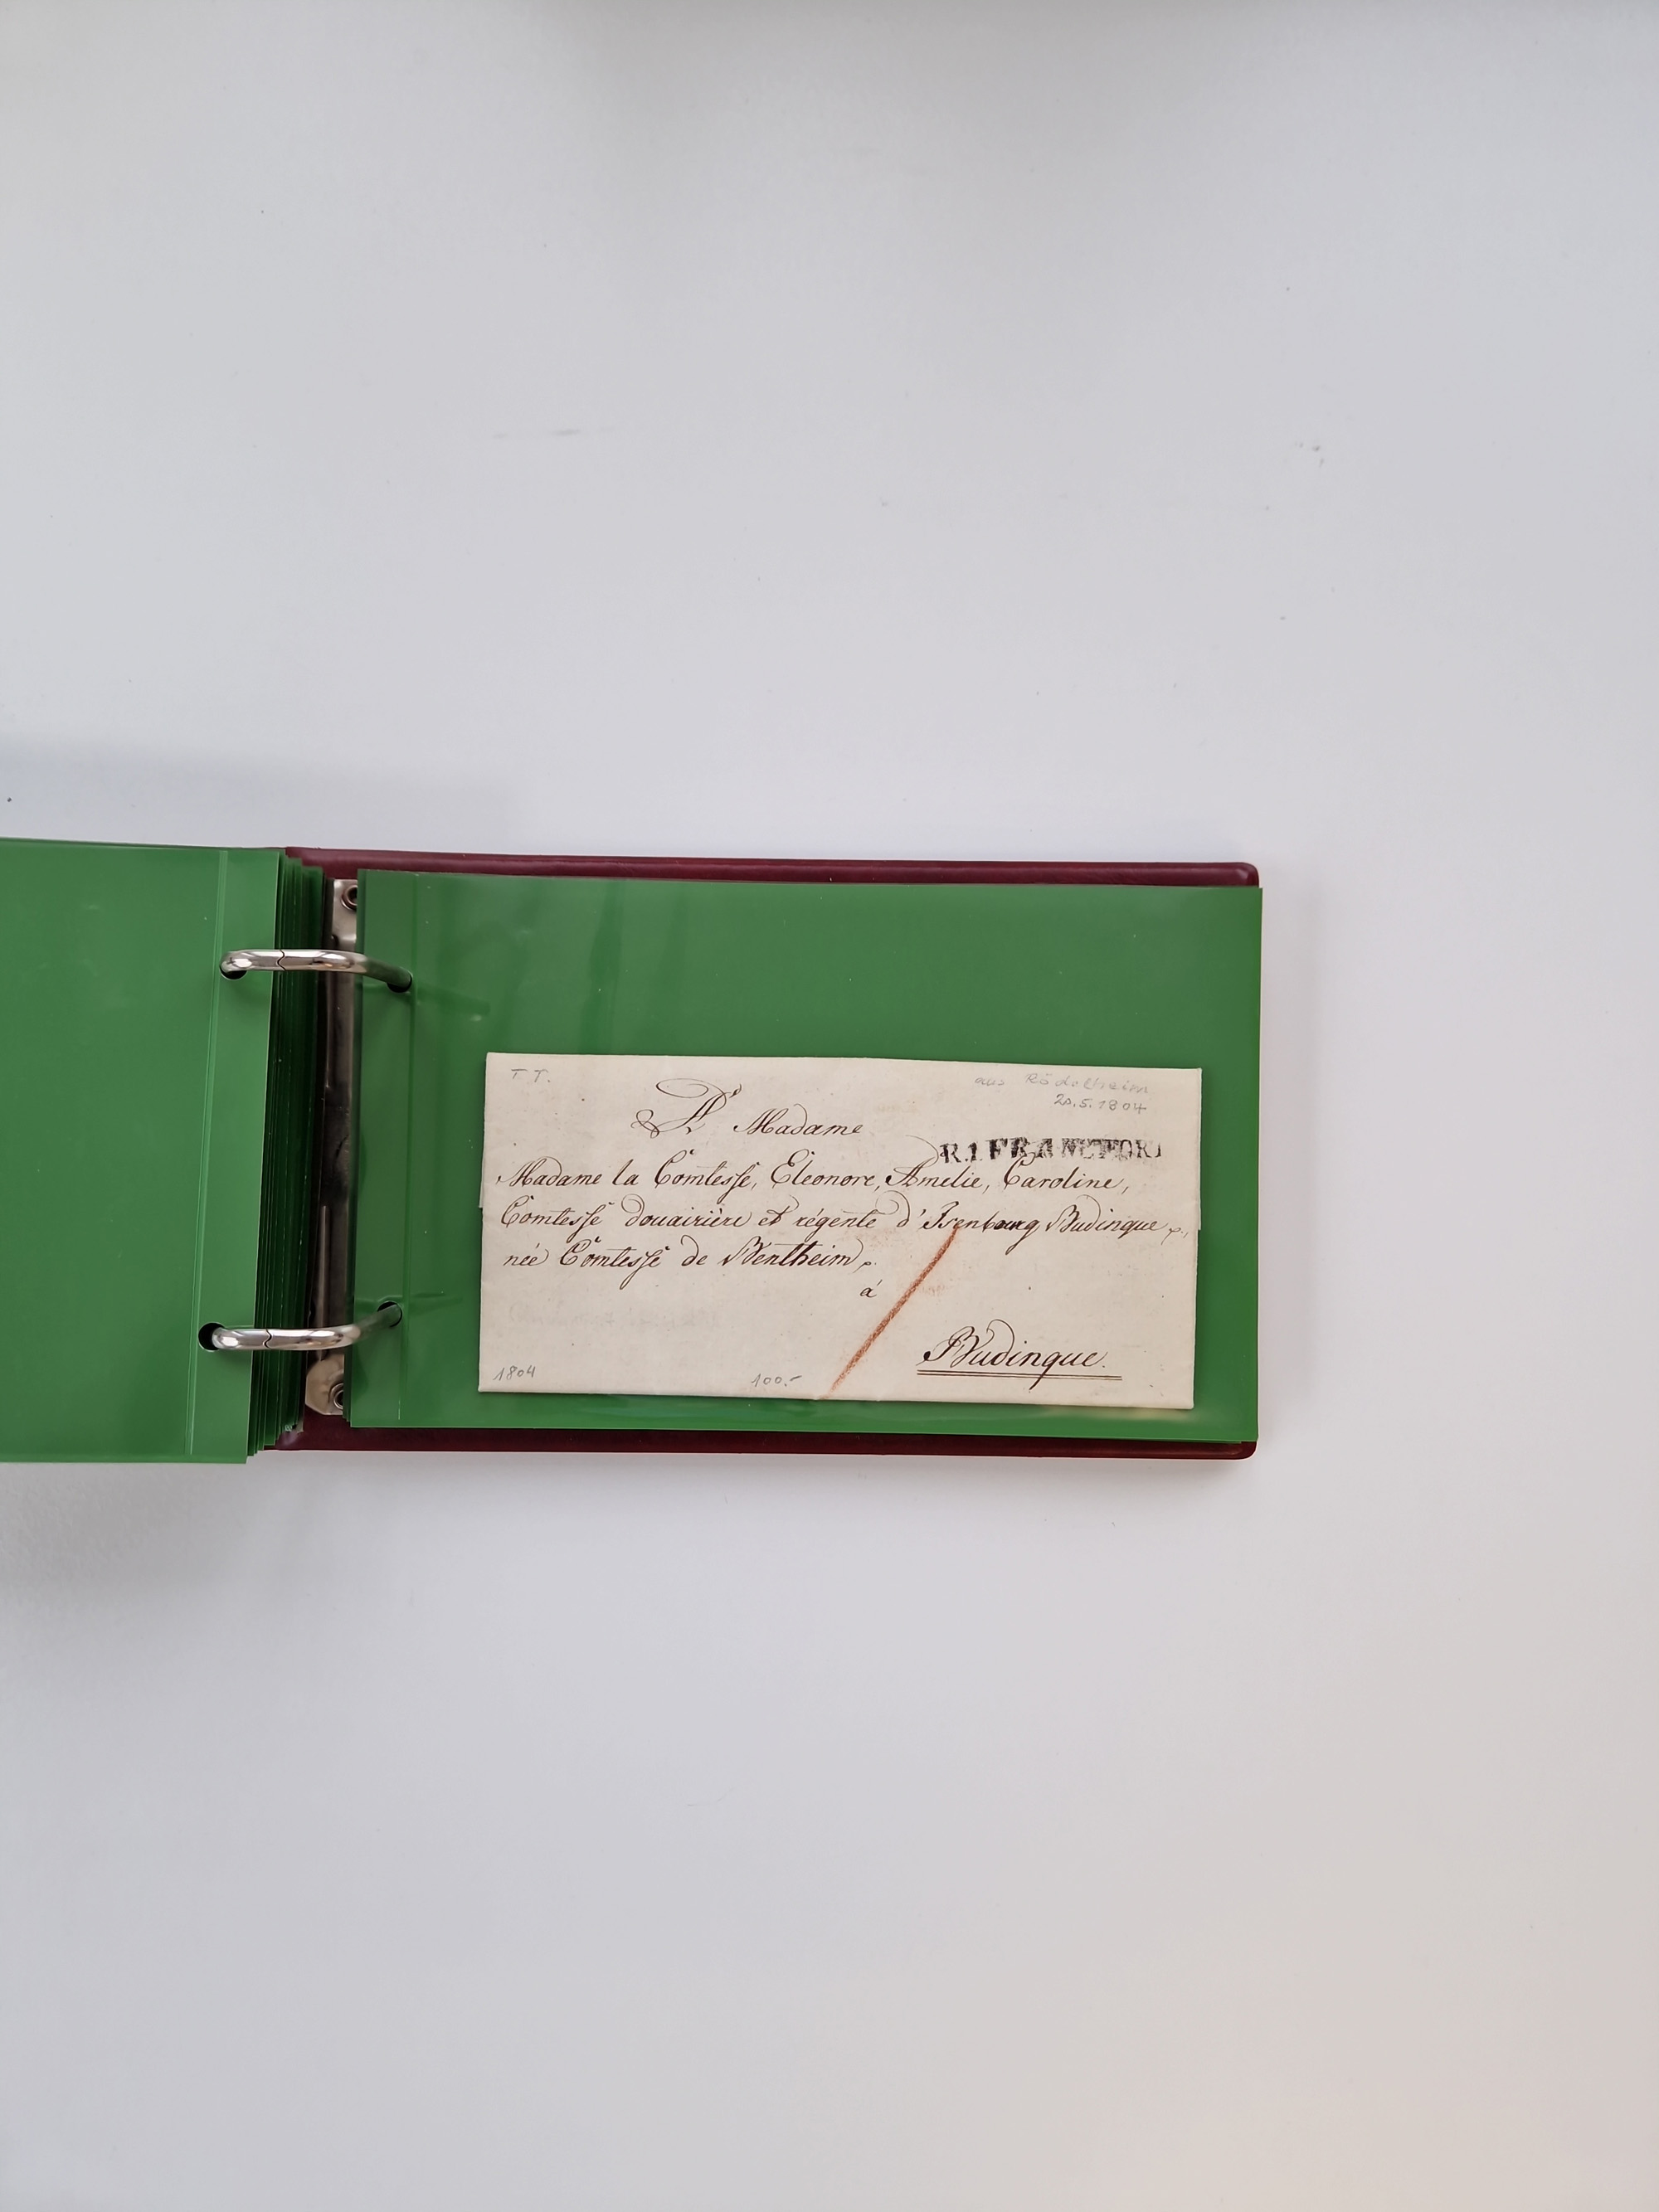 T T.
aus Rödelheim
20.5.1804
A Madame
R.1 FRANCFORT
Madame la Comtesse, Eleonore, Amelie, Caroline,
Comtesse douairière et régente d'Isenbourg Budingue p.,
née Comtesse de Bentheim p.
à
Budingue.
1804
100.-